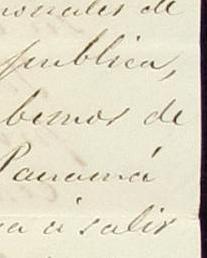 onales de
pública,
bemos de
Panamá
a á salir